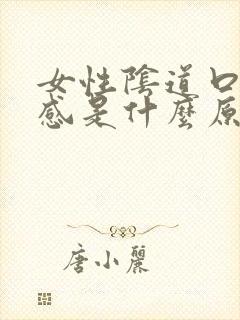 女性陰道口
感是什麼原
唐小麗